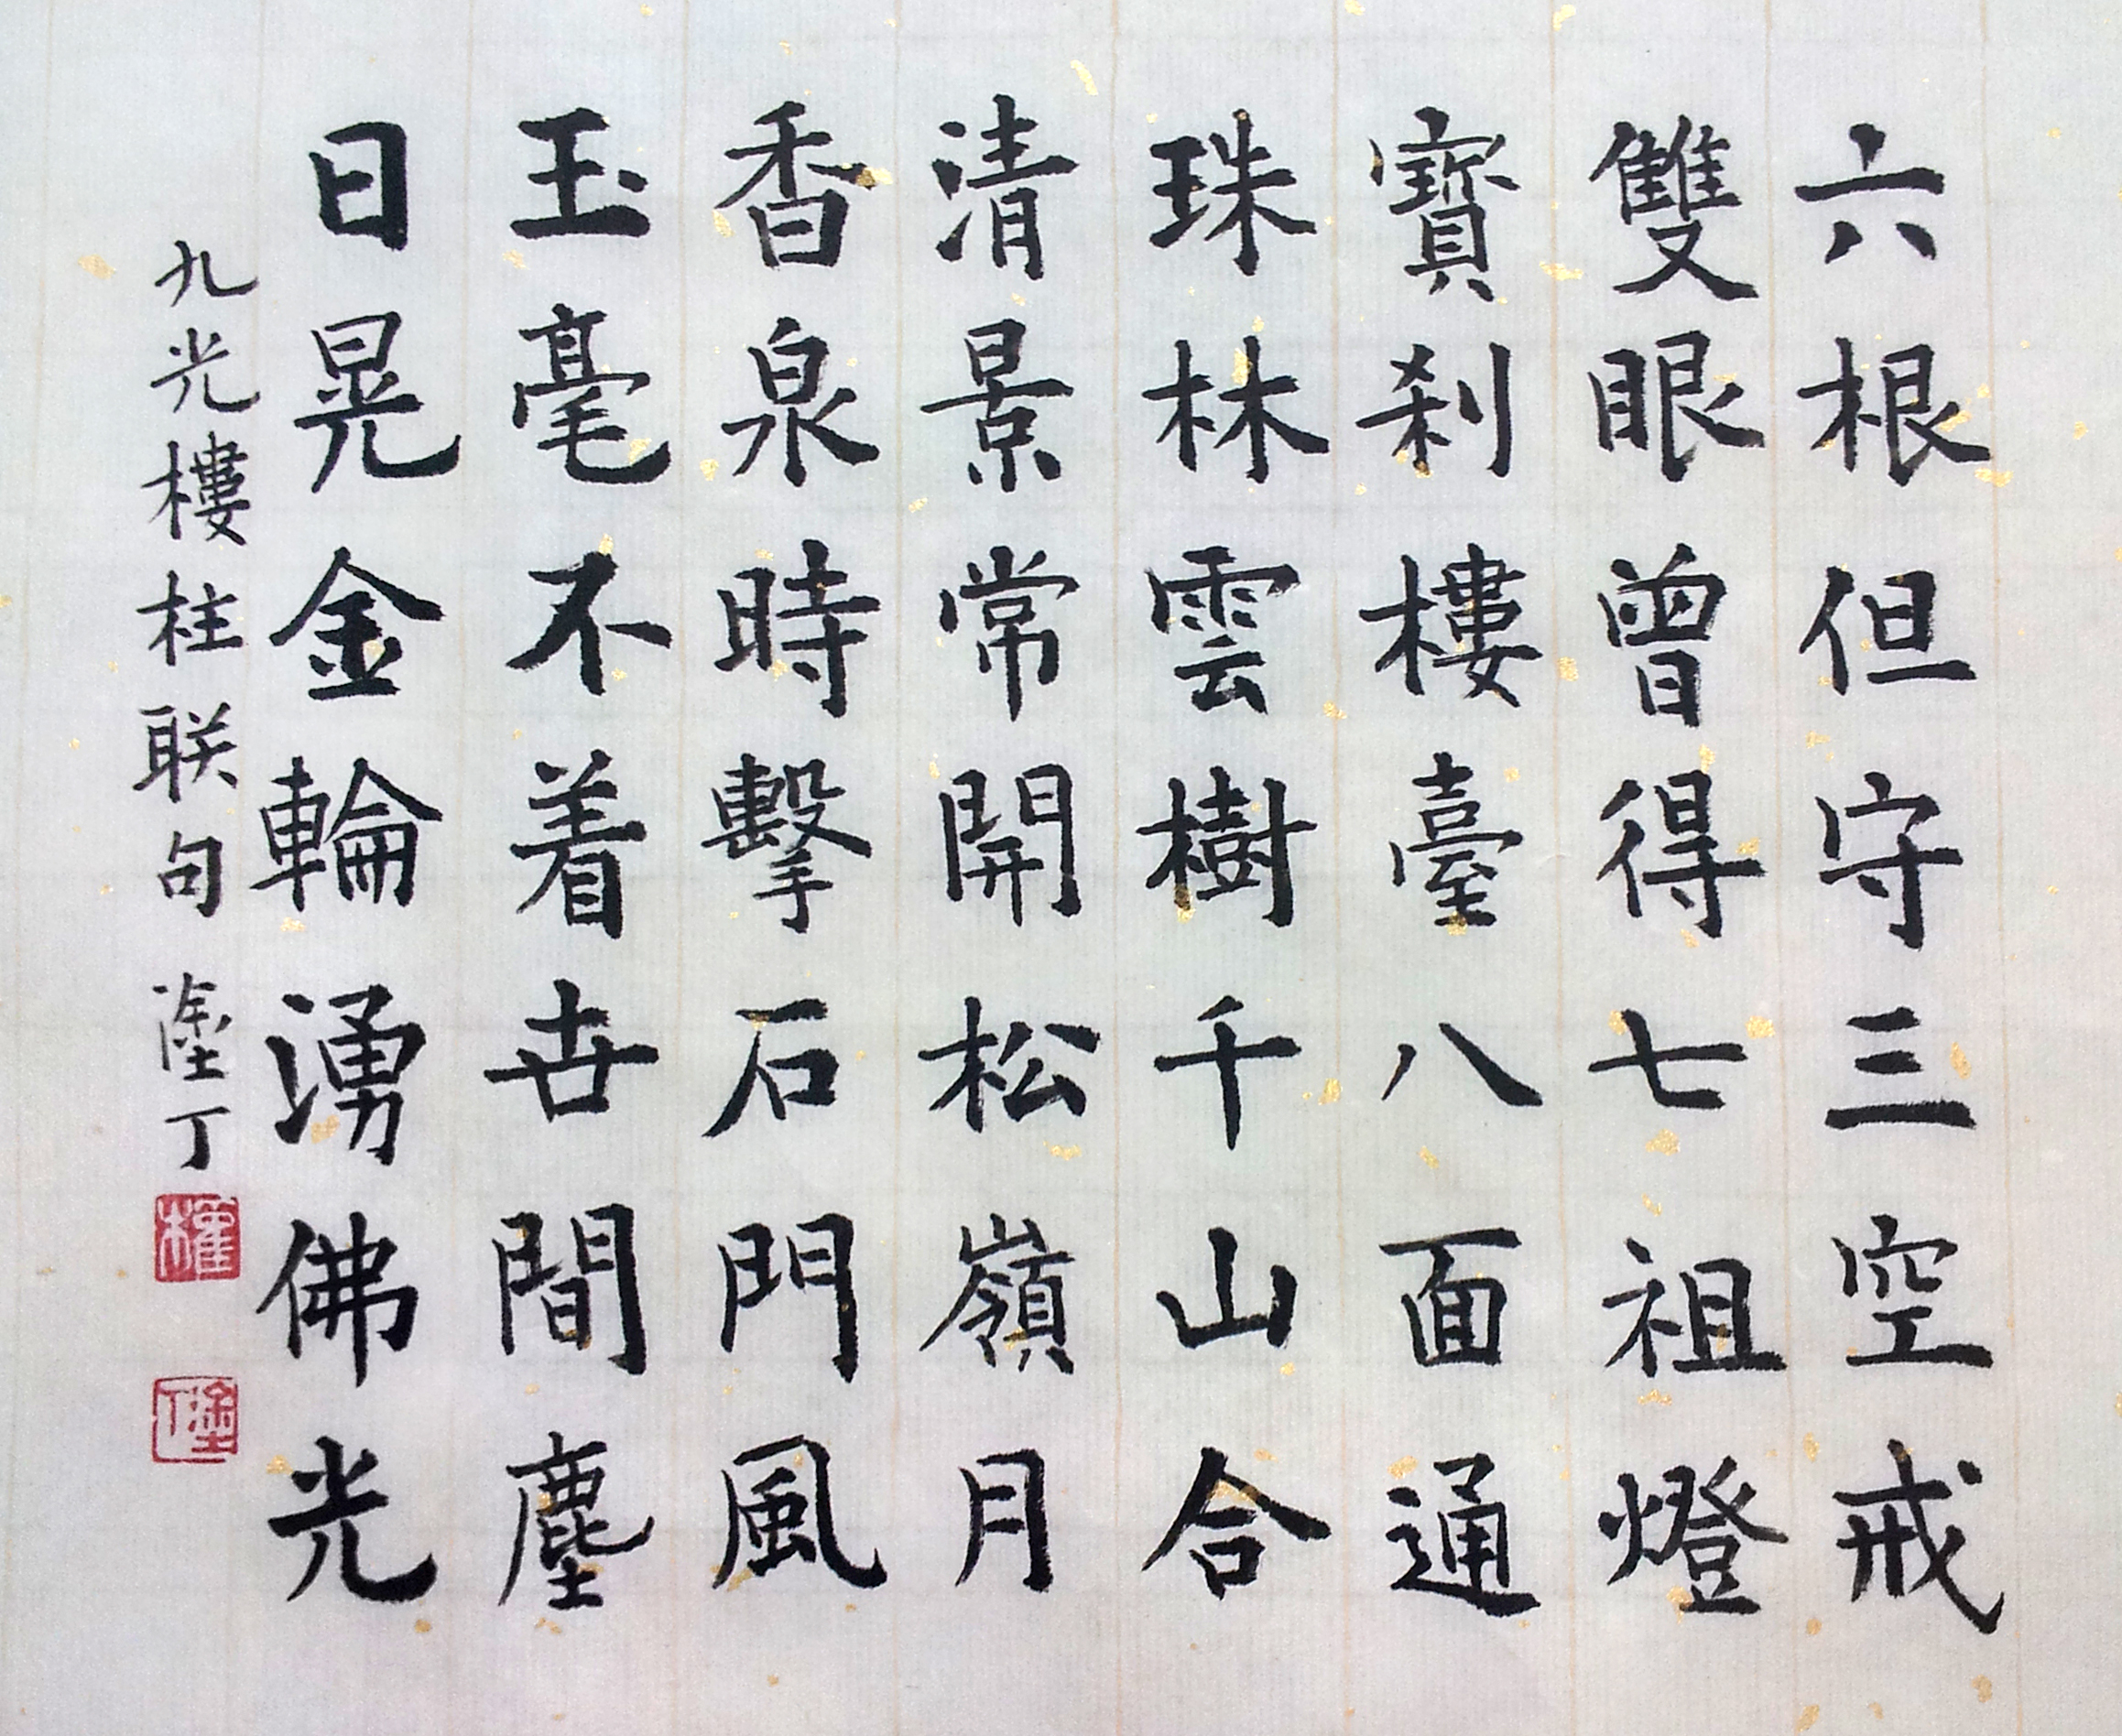 六根但守三空戒
雙眼曾得七祖燈
寶刹樓臺八面通
珠林雲樹千山合
清景常開松嶺月
香泉時擊石門風
玉毫不着世間塵
日晃金輪湧佛光
九光樓柱联句 塗丁
權
塗丁